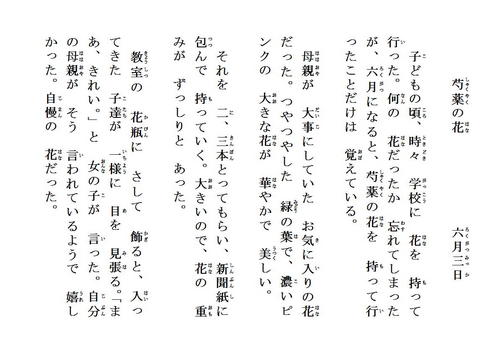 芍薬の花　六月三日
子どもの頃、時々 学校に 花を 持って
行った。何の 花だったか 忘れてしまった
が、六月になると、芍薬の花を 持って行
ったことだけは 覚えている。
母親が 大事にしていた お気に入りの花
だった。つやつやした 緑の葉で、濃いピ
ンクの 大きな花が 華やかで 美しい。
それを 二、三本とってもらい、新聞紙に
包んで 持っていく。大きいので、花の 重
みが ずっしりと あった。
教室の 花瓶に さして 飾ると、入っ
てきた 子達が 一様に 目を 見張る。「ま
あ、きれい。」と 女の子が 言った。自分
の母親が そう 言われているようで 嬉し
かった。自慢の 花だった。